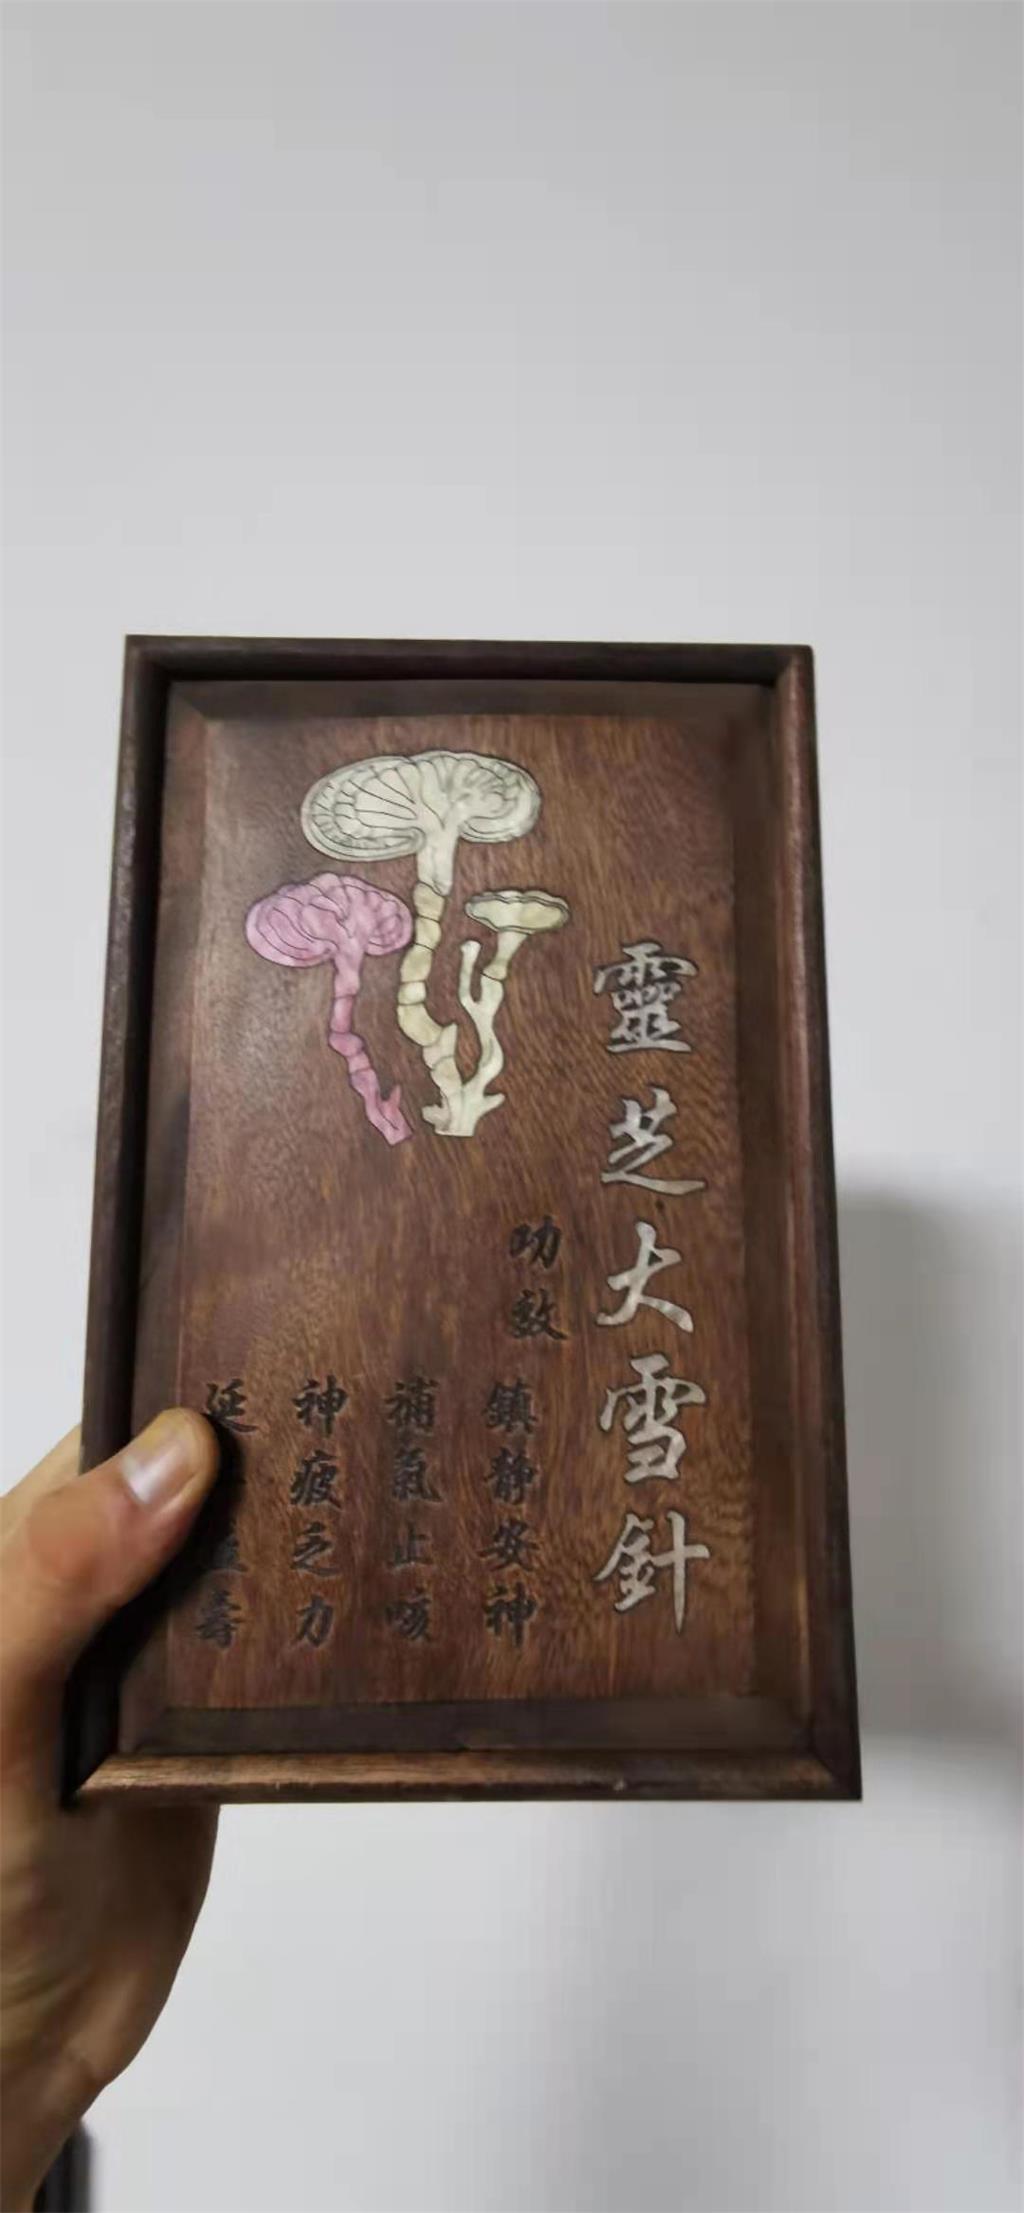 靈芝大雪針
功效
鎮靜安神
補氣止咳
神疲乏力
延 壽